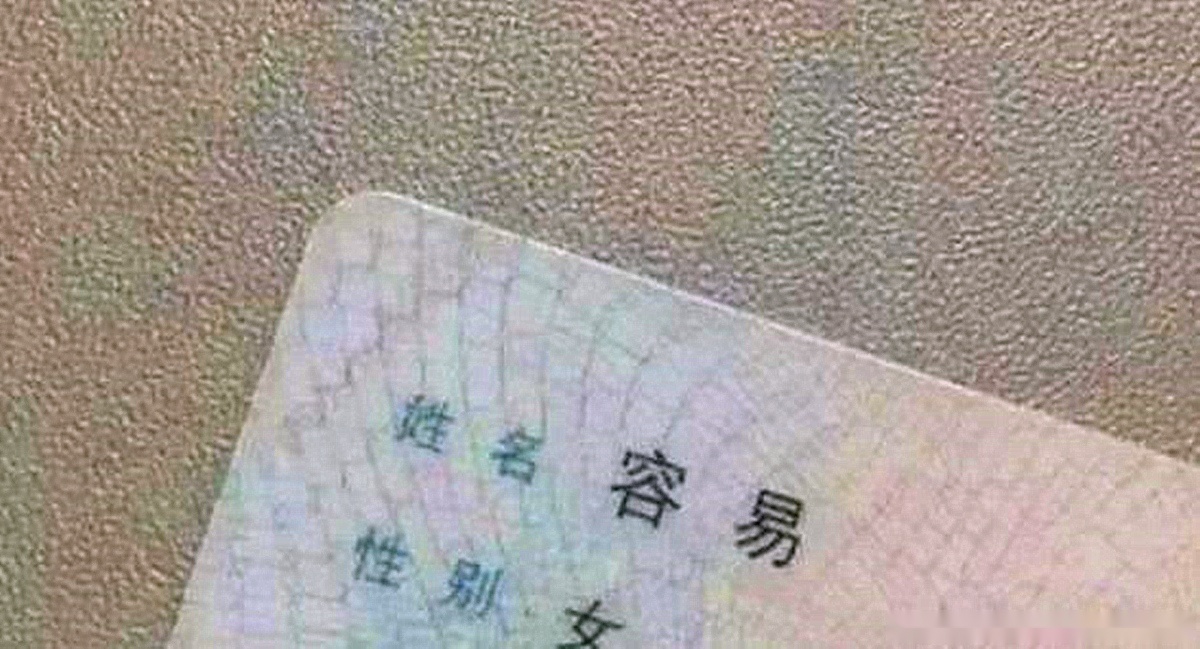 姓名 容易
性别 女